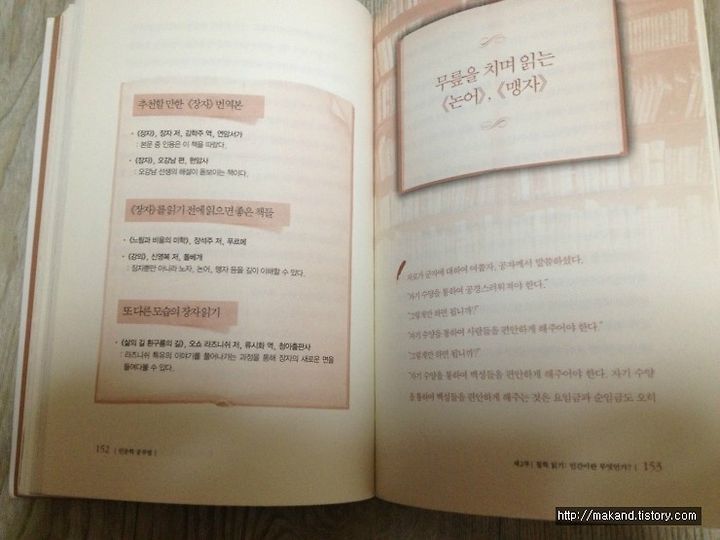 추천할 만한 《장자》 번역본
· 《장자》, 장자 저, 김학주 역, 연암서가
: 본문 중 인용은 이 책을 따랐다.
· 《장자》, 오강남 편, 현암사
: 오강남 선생의 해설이 돋보이는 책이다.
《장자》를 읽기 전에 읽으면 좋은 책들
· 《느림과 비움의 미학》, 장석주 저, 푸르메
· 《강의》, 신영복 저, 돌베개
: 장자뿐만 아니라 노자, 논어, 맹자 등을 깊이 이해할 수 있다.
또 다른 모습의 장자 읽기
· 《삶의 길 흰구름의 길》, 오쇼 라즈니쉬 저, 류시화 역, 청아출판사
: 라즈니쉬 특유의 이야기를 풀어나가는 과정을 통해 장자의 새로운 면을
들여다볼 수 있다.
152 | 인문학 공부법 |
무릎을 치며 읽는
《논어》, 《맹자》
자로가 군자에 대하여 여쭙자, 공자께서 말씀하셨다.
"자기 수양을 통하여 공경스러워져야 한다."
"그렇게만 하면 됩니까?"
"자기 수양을 통하여 사람들을 편안하게 해주어야 한다."
"그렇게만 하면 됩니까?"
"자기 수양을 통하여 백성들을 편안하게 해주어야 한다. 자기 수양
을 통하여 백성들을 편안하게 해주는 것은 요임금과 순임금도 오히
제2부 | 철학 읽기: 인간이란 무엇인가? | 153
http://makand.tistory.com